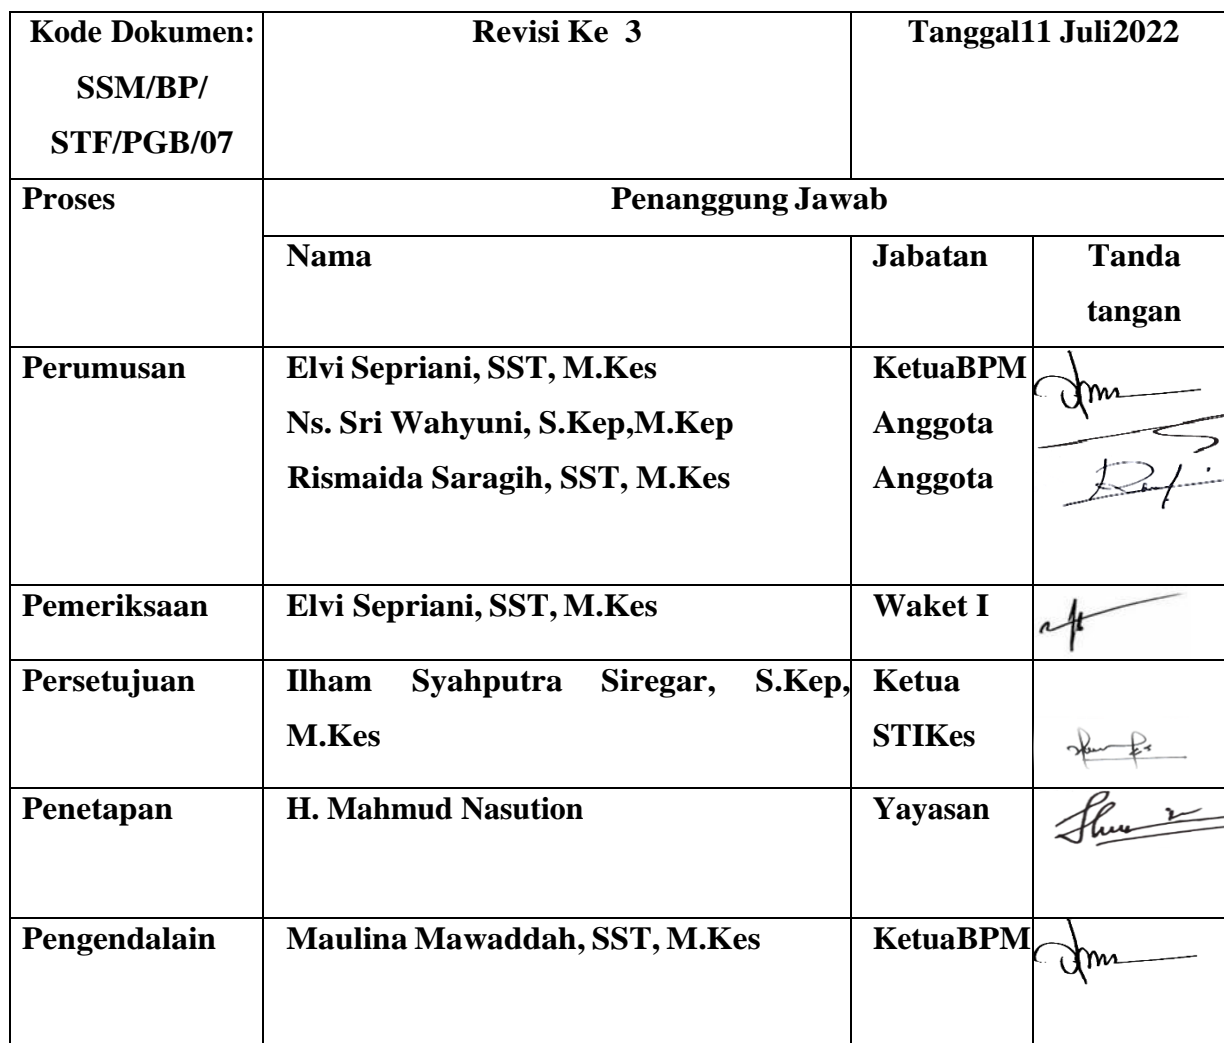 Kode Dokumen: Revisi Ke 3 Tanggal11 Juli2022
SSM/BP/
STF/PGB/07
Proses Penanggung Jawab
Nama Jabatan Tanda
tangan
Perumusan Elvi Sepriani, SST, M.Kes KetuaBPM
Ns. Sri Wahyuni, S.Kep,M.Kep Anggota
Rismaida Saragih, SST, M.Kes Anggota
Pemeriksaan Elvi Sepriani, SST, M.Kes Waket I
Persetujuan Ilham Syahputra Siregar, S.Kep, Ketua
M.Kes STIKes
Penetapan H. Mahmud Nasution Yayasan
Pengendalain Maulina Mawaddah, SST, M.Kes KetuaBPM